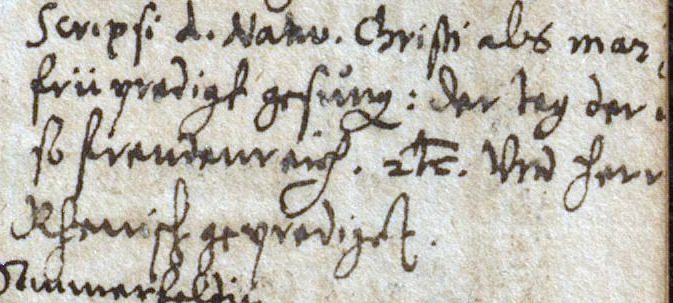 Scripsi d. Nativ. Christi als man
früpredigt gesung: der tag der
so freudenreich. etc. Vnd herr
Rhenisch geprediget.
Sommerfeldij